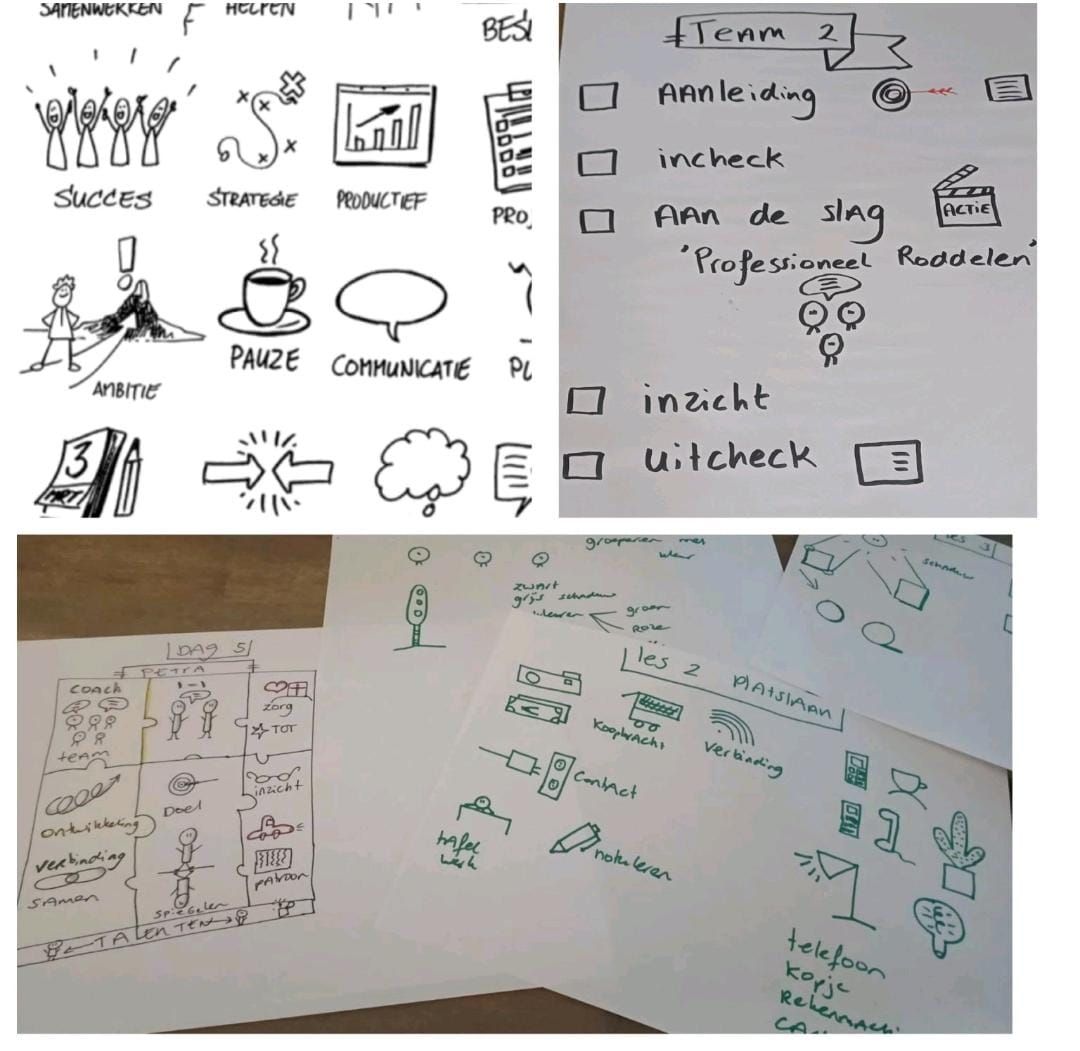 SAMENWERKEN
HELPEN
SUCCES
STRATEGIE
PRODUCTIEF
AMBITIE
PAUZE
COMMUNICATIE
3
MRT
Team 2
AAnleiding
incheck
AAn de slAg
ACTIE
'Professioneel Roddelen'
inzicht
uitcheck
DAG 5
PETRA
COACH
teAm
1-1
zorg
TOT
ontwikkeling
Doel
inzicht
verbinding
SAmen
spiegelen
pAtroon
TALENTEN
groeperen met
kleur
zwart
grijs schaduw
kleuren
groen
Roze
les 3
schaduw
les 2 plAtslAAn
KoopkrAcht
verbinding
contAct
tAfel
werk
notuleren
telefoon
kopje